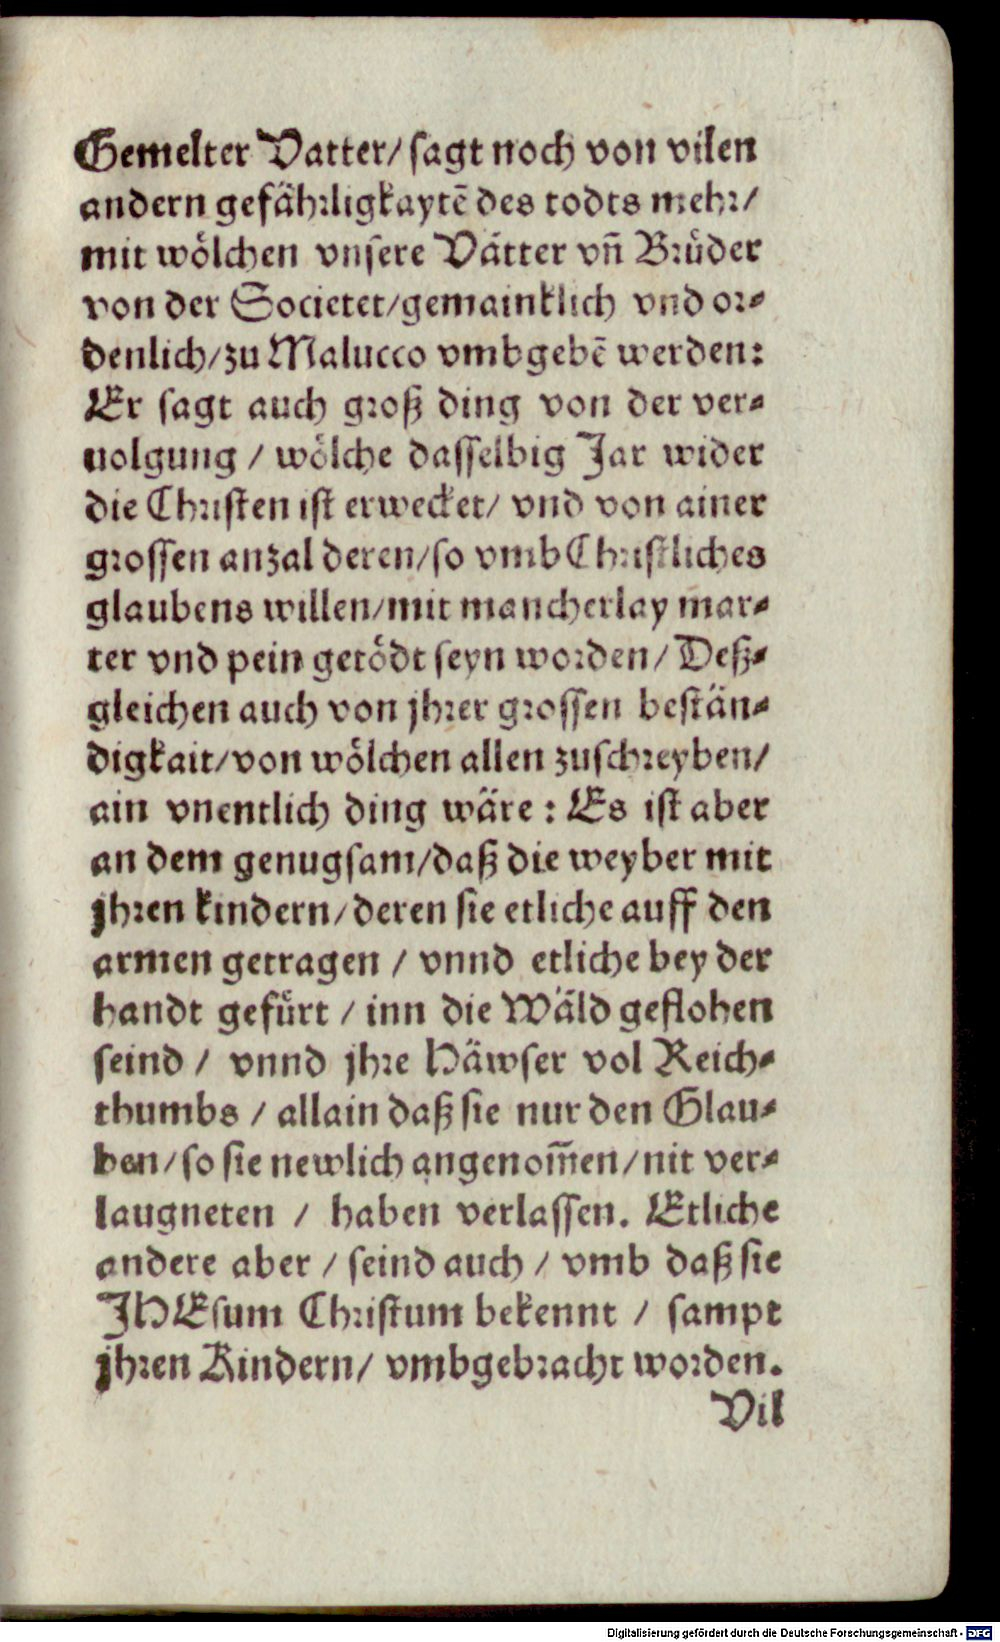 Gemelter Vatter/ sagt noch von vilen
andern gefährligkaytē des todts mehr/
mit wölchen vnsere Vätter vñ Brüder
von der Societet/gemainklich vnd or⸗
denlich/zu Malucco vmbgebē werden:
Er sagt auch groß ding von der ver⸗
uolgung / wölche dasselbig Jar wider
die Christen ist erwecket/ vnd von ainer
grossen anzal deren/so vmb Christliches
glaubens willen/mit mancherlay mar⸗
ter vnd pein getödt seyn worden/ Deß⸗
gleichen auch von jhrer grossen bestän⸗
digkait/von wölchen allen zuschreyben/
ain vnentlich ding wäre : Es ist aber
an dem genugsam/daß die weyber mit
jhren kindern/deren sie etliche auff den
armen getragen / vnnd etliche bey der
handt gefürt / inn die Wäld geflohen
seind / vnnd jhre Häwser vol Reich⸗
thumbs / allain daß sie nur den Glau⸗
ben/so sie newlich angenom̄en/nit ver⸗
laugneten / haben verlassen. Etliche
andere aber / seind auch / vmb daß sie
JHEsum Christum bekennt / sampt
jhren Kindern/ vmbgebracht worden.
Vil
Digitalisierung gefördert durch die Deutsche Forschungsgemeinschaft - DFG